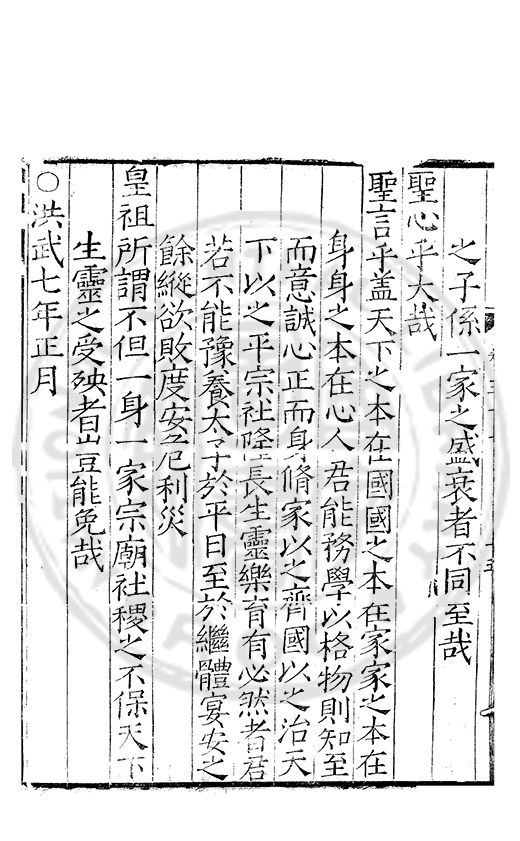 之子係一家之盛衰者不同至哉
聖心乎大哉
聖言乎盖天下之本在國國之本在家家之本在
身身之本在心人君能務學以格物則知至
而意誠心正而身脩家以之齊國以之治天
下以之平宗社隆長生靈樂育有必然者君
若不能豫養太子於平日至於繼體宴安之
餘縱欲敗度安危利災
皇祖所謂不但一身一家宗廟社稷之不保天下
生靈之受殃者豈能免哉
○洪武七年正月